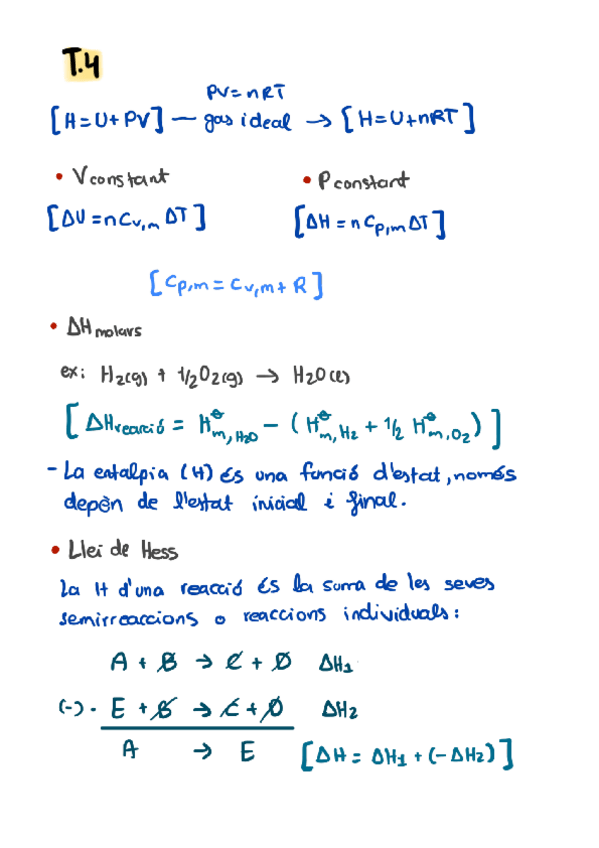 T.4
PV=nRT
[H=U+PV] — gas ideal → [H=U+nRT]
• V constant • P constant
[ΔU=nCv,m ΔT] [ΔH=nCp,m ΔT]
[Cp,m=Cv,m+R]
• ΔH molars
ex: H2(g) + 1/2O2(g) → H2O(l)
[ΔHreacció = H°m,H2O − (H°m,H2 + 1/2 H°m,O2)]
- La entalpia (H) és una funció d'estat, només
depèn de l'estat inicial i final.
• Llei de Hess
La H d'una reacció és la suma de les seves
semirreaccions o reaccions individuals:
A + B → C + D ΔH1
(-)· E + B → C + D ΔH2
A → E [ΔH = ΔH1 + (-ΔH2)]